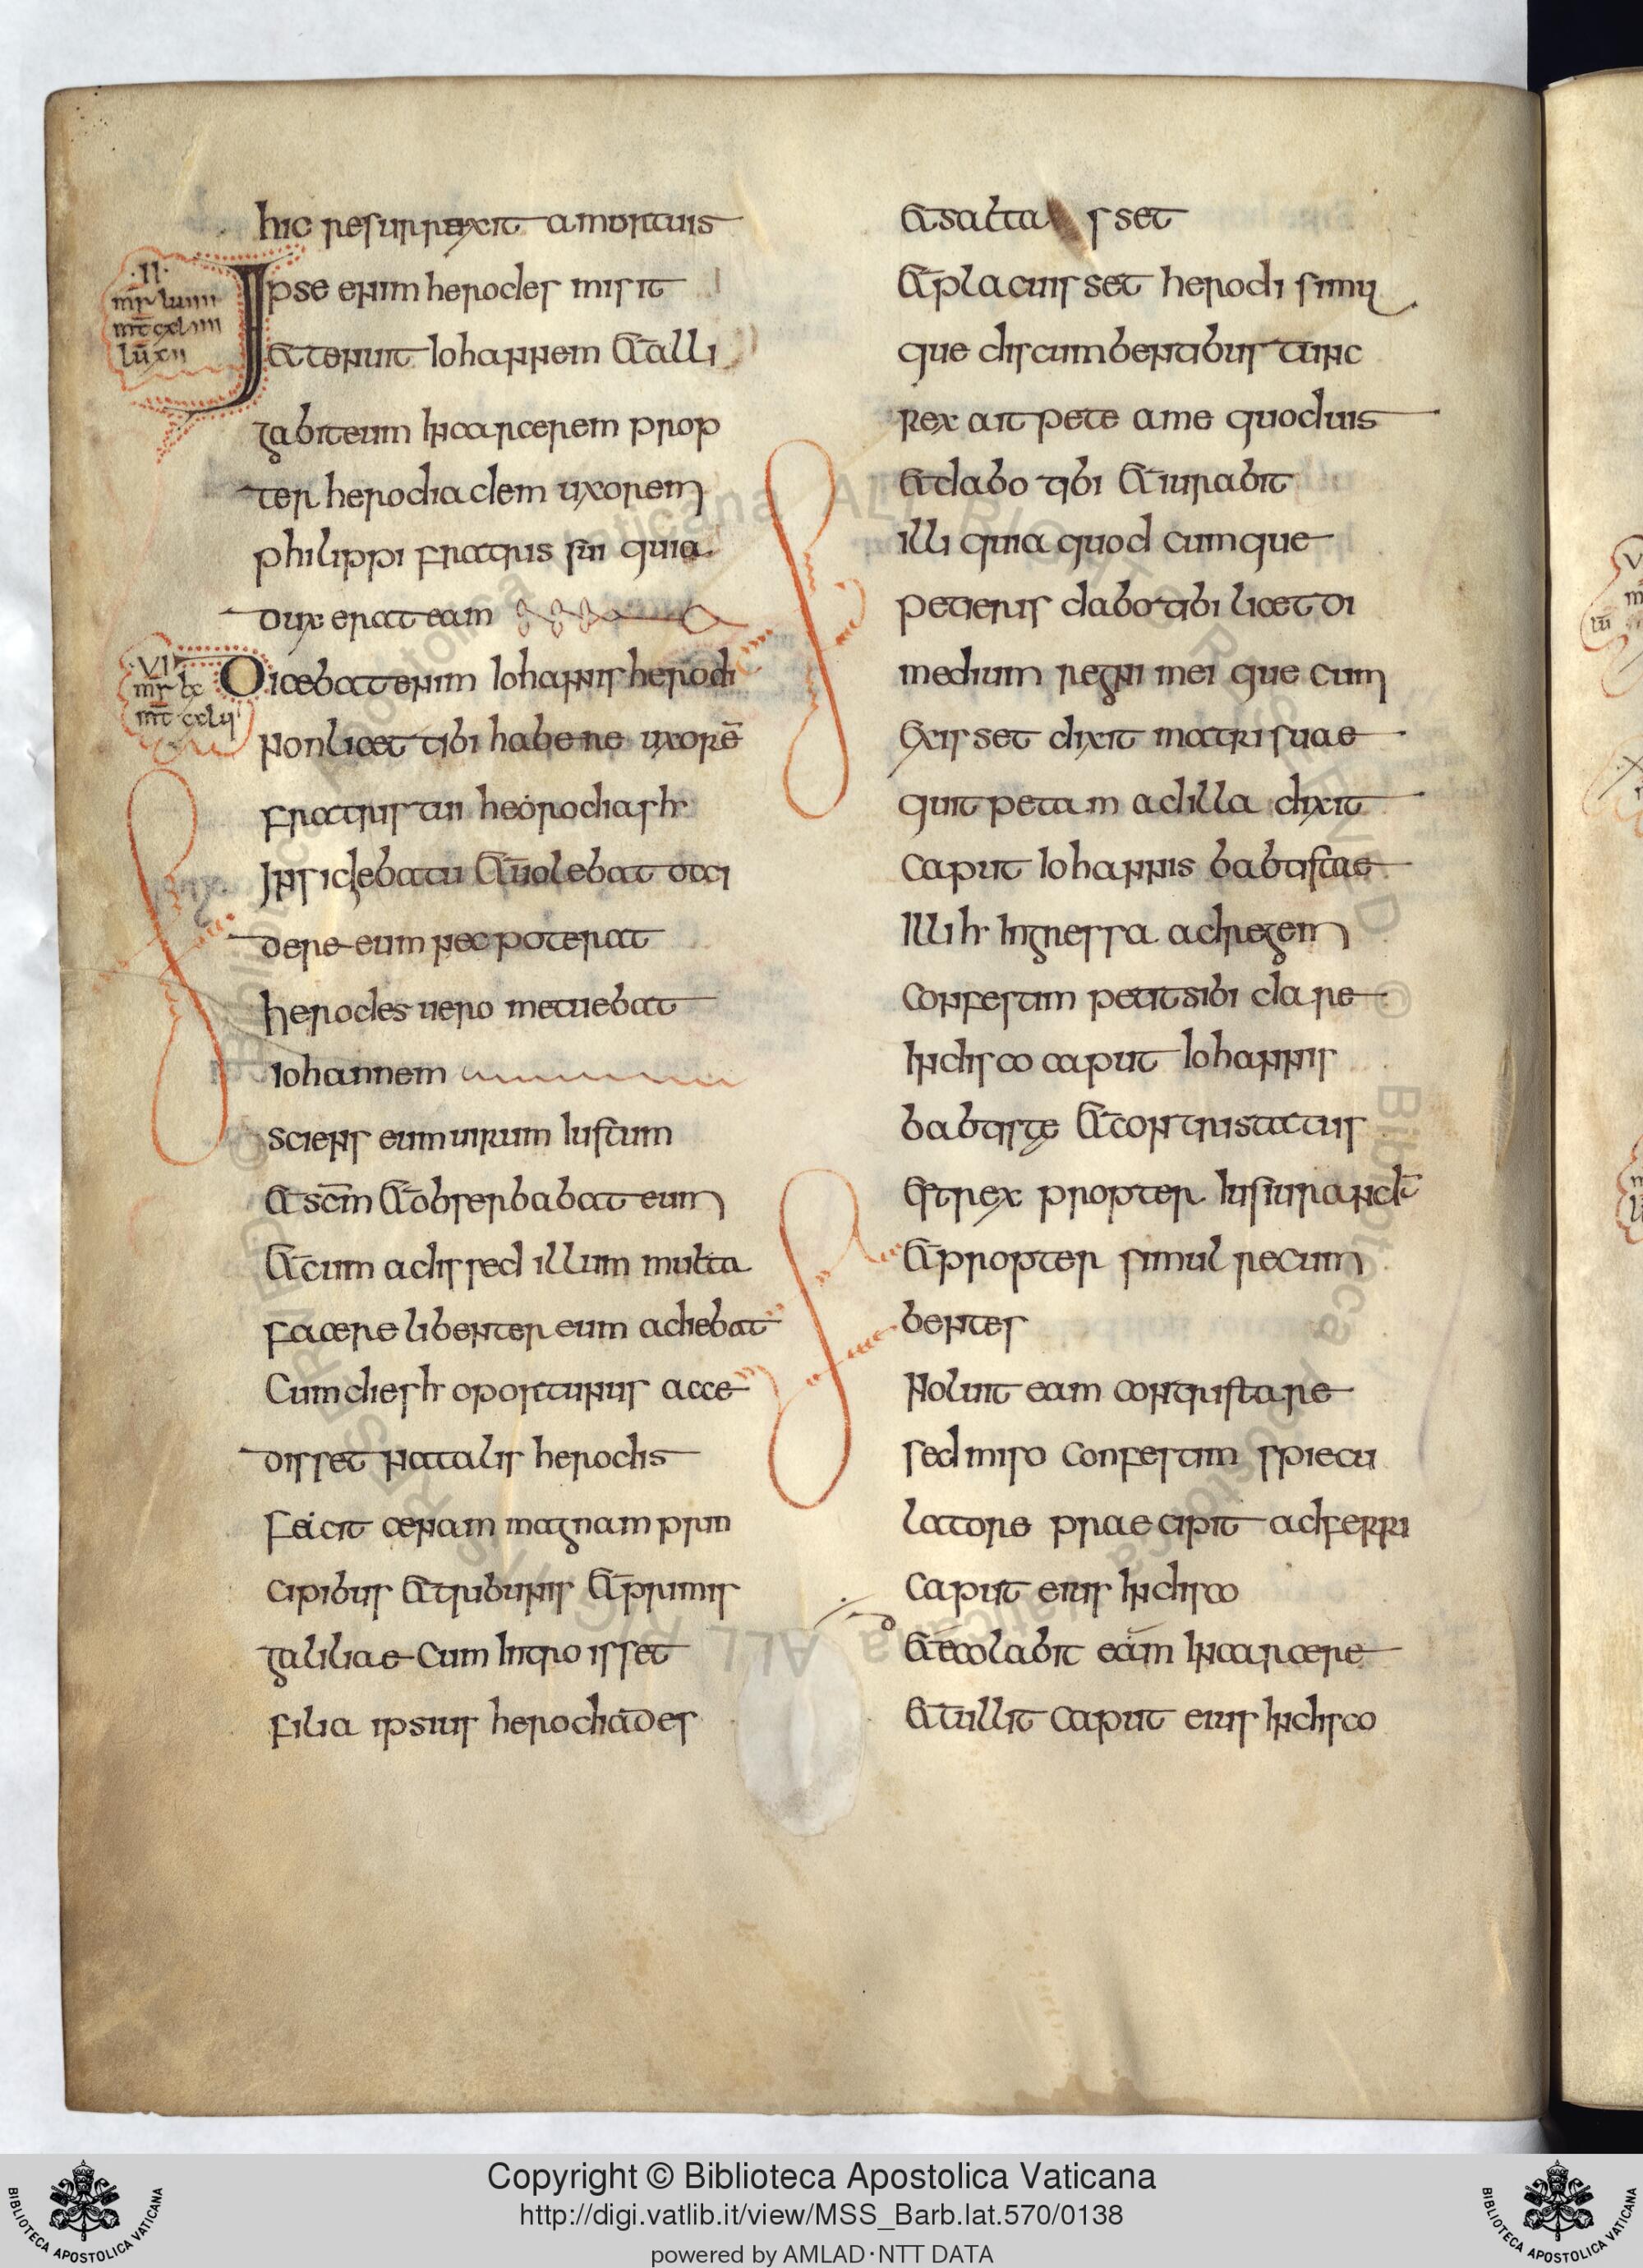 hic resurrexit a mortuis
·II·
mr̄ luiiii
mt̄ cxliiii
lū xii
Ipse enim herodes misit
et tenuit Iohannem et alli
gabit eum In carcerem prop
ter herodiadem uxorem
philippi fratris sui quia
duxerat eam
·VI·
mr̄ lx
mt̄ cxlu
Dicebat enim Iohannis herodi
non licet tibi habere uxorē
fratris tui herodias hr
Insidebatu et uolebat occi
dere eum nec poterat
herodes uero metuebat
Iohannem
sciens eum uirum Iustum
et scm̄ et obserbabat eum
et cum adissed illum multa
facere libenter eum adiebat
Cum dies hr oportunus acce
disset natalis herodis
feicit cenam magnam prin
cipibus et tribunis et primis
galiliae Cum Introisset
filia ipsius herodiades
et salta sset
et placuisset herodi simu
que discumbentibus tunc
rex ait pete a me quod uis
et dabo tibi et iurabit
illi quia quodcumque
petieris dabo tibi licet di
medium regni mei que cum
exisset dixit matri suae
quit petam ad illa dixit
caput Iohannis babtistae
Illi hr Ingressa ad regem
confestim petit sibi dare
In disco caput Iohannis
babtiste et contristatus
est rex propter Iusiurand
et propter simul recum
bentes
Noluit eam contristare
sed miso confestim spiecu
latore praecipit adferri
caput eius In disco
et decolabit eam In carcere
et tullit caput eius In disco
Copyright © Biblioteca Apostolica Vaticana
http://digi.vatlib.it/view/MSS_Barb.lat.570/0138
powered by AMLAD·NTT DATA
BIBLIOTECA APOSTOLICA VATICANA
BIBLIOTECA APOSTOLICA VATICANA